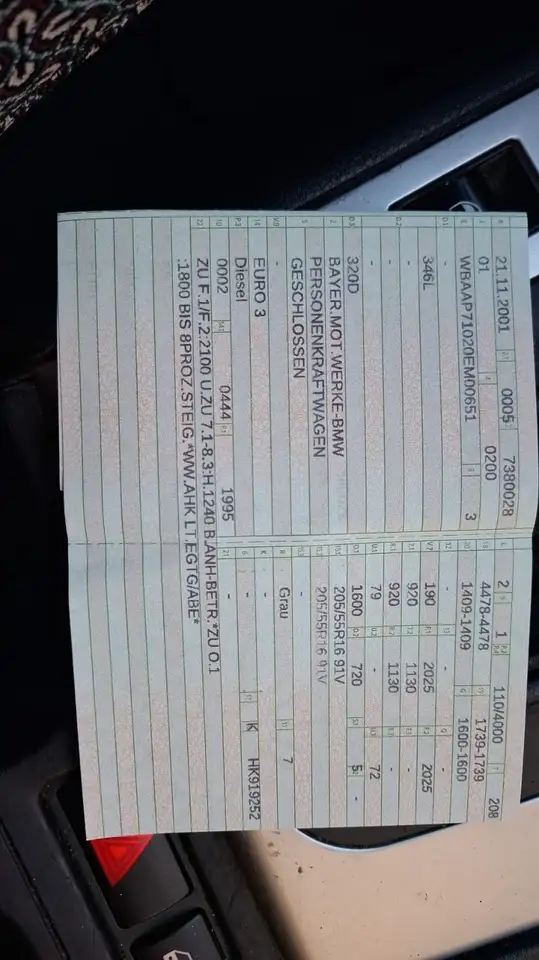 21.11.2001 0005 7380028
01 0200
WBAAP71020EM00651 3
-
346L
-
-
320D
BAYER.MOT.WERKE-BMW
PERSONENKRAFTWAGEN
GESCHLOSSEN
-
EURO 3
Diesel
0002 0444 1995
ZU F.1/F.2:2100 U.ZU 7.1-8.3:H.1240 B.ANH-BETR.*ZU O.1
:1800 BIS 8PROZ.STEIG.*WW.AHK LT.EGTG/ABE*
2 1 110/4000 208
4478-4478 1739-1739
1409-1409 1600-1600
- - -
190 2025 2025
920 1130 -
920 1130 -
79 - 72
1600 720 5 -
205/55R16 91V
205/55R16 91V
-
Grau 7
-
- K HK919252
-